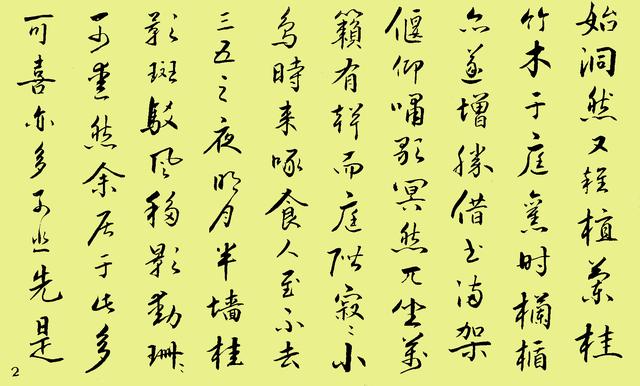 始洞然又雜植蘭桂
竹木于庭舊时欄楯
亦遂增勝借书满架
偃仰嘯歌冥然兀坐萬
籟有聲而庭階寂〻小
鳥時来啄食人至不去
三五之夜明月半墙桂
影斑駁风移影動珊〻
可愛然余居于此多
可喜亦多可悲先是
2